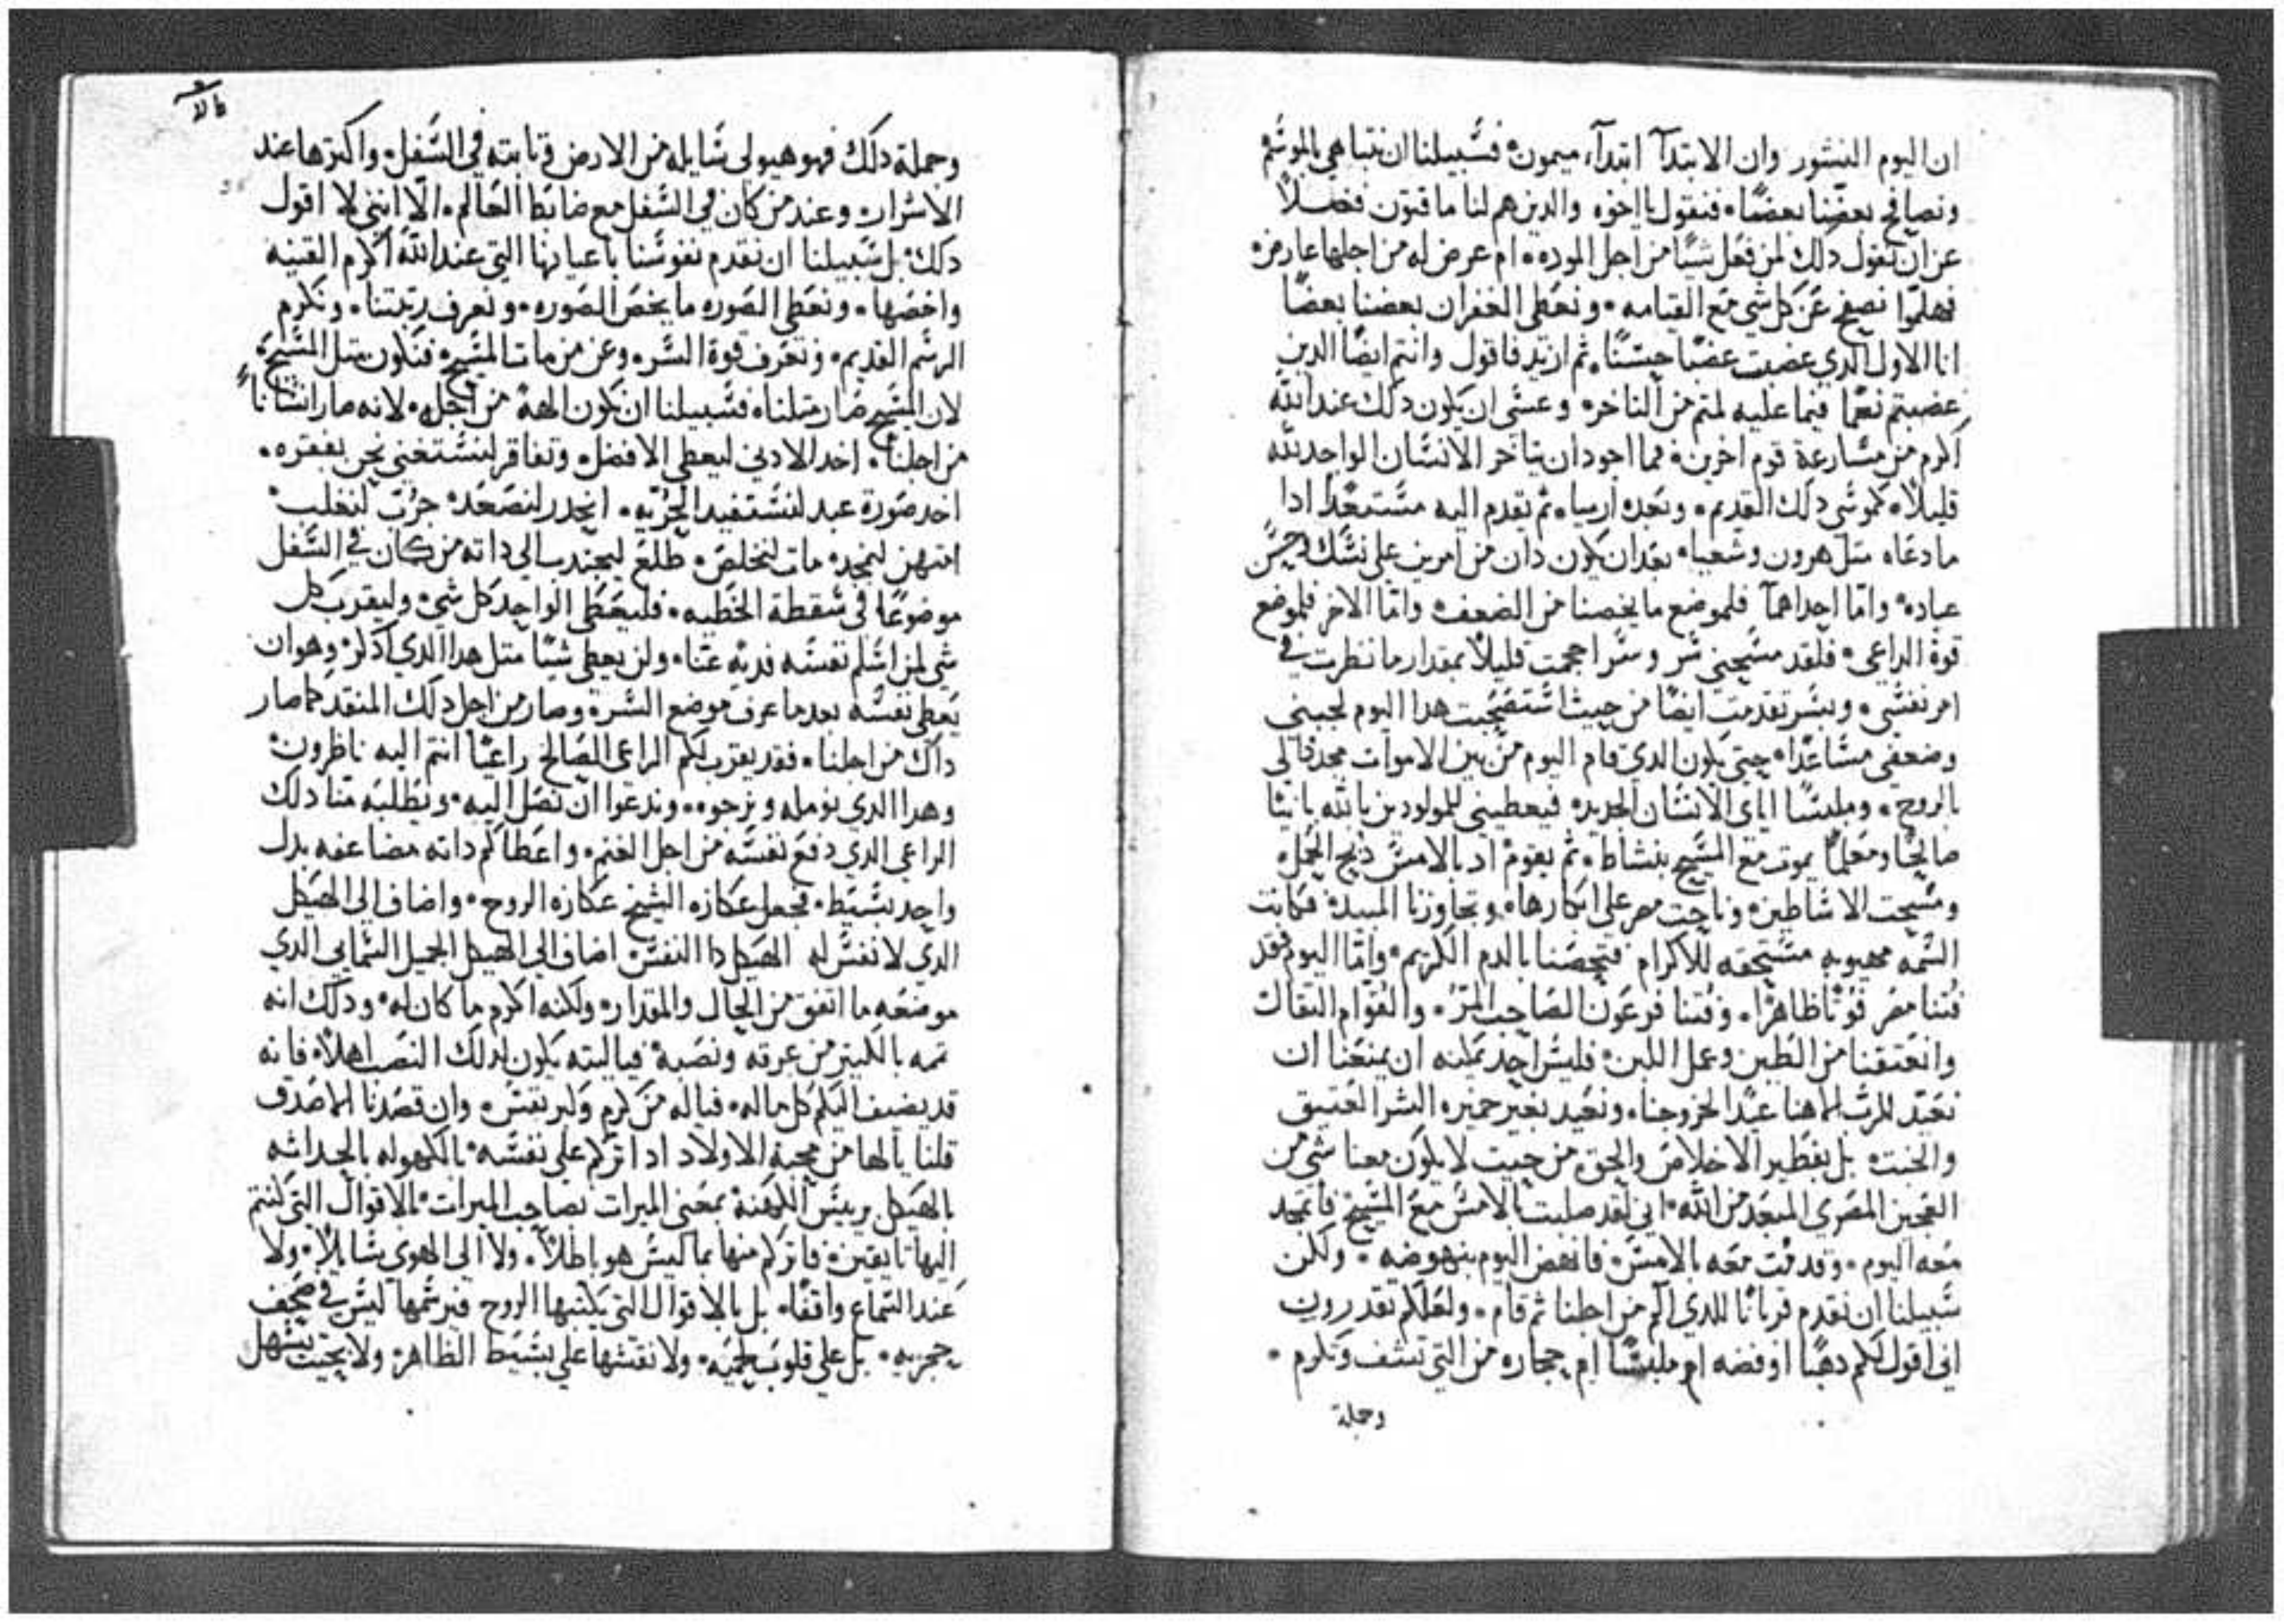 ان اليوم النشور وان الابتدآ ابتدآء ميمون فسبيلنا ان نتباهي بالموسم
ونصافح بعضنا بعضًا فنقول يا اخوه والذين هم لنا ماقتون فضلاً
عن ان نقول ذلك لمن فعل شيًا من اجل الموده ام عرض له من اجلها عارض
فهلموا نصفح عن كل شي مع القيامه ونعطي الغفران بعضنا بعضًا
انا الاول الدي غضبت غضبًا حسنًا ثم ازيد فاقول وانتم ايضًا الدين
غضبتم نعما فيما عليه لمتم من التاخر وعسى ان يكون دلك عند الله
اكرم من مسارعة قوم اخرين فما اجود ان يتاخر الانسان الواحد لله
قليلاً كموسي دلك القديم وبعده ارميا ثم تقدم اليه مستعدًا ادا
ما دعاه متل هرون وشعيا بعد ان يكون دان من امرين على نسك وحسن
عباده واما احداهما فلموضع ما يخصنا من الضعف واما الاخر فلموضع
قوة الداعي فلقد مسحني سر وسرا احجمت قليلاً بمقدار ما نظرت في
امر نفسي وبسر تقدمت ايضًا من حيث استصحبت هدا اليوم لجبني
وضعفي مساعدًا حتى يكون الدي قام اليوم من بين الاموات مجددًا لي
بالروح وملبسًا اياي الانسان الجديد فيعطيني للمولودين بالله بانيًا
صالحًا ومعلمًا يموت مع المسيح بنشاط ثم يقوم اد بالامس دبح الحمل
ومسحت الاشاطين وناحت مصر على ابكارها وتجاوزنا المبيد فكانت
السمه محبوبه مستحقه للاكرام فتحصنا بالدم الكريم واما اليوم فقد
فتنا مصر فوتًا ظاهرًا وفتنا فرعون الصاحب المر والقوام الثقال
وانعتقنا من الطين وعمل اللبن فليس احد يمكنه ان يمنعنا ان
نعيد للرب الاهنا عيدًا لخروجنا ونعيد بغير خميره الشر العتيق
والخبت بل بفطير الاخلاص والحق من حيت لا يكون معنا شي من
العجين المصري المبعد من الله اني لقد صلبت بالامس مع المسيح فاتمجد
معه اليوم وقد مت معه بالامس فانهض اليوم بنهوضه ولكن
سبيلنا ان نقدم قربانًا للدي الم من اجلنا ثم قام ولعلكم تقدرون
اني اقول لكم دهبًا او فضه ام ملبسًا ام حجاره من التي تشف وتكرم
وجملة
وجملة دلك فهو هيولى سايله من الارض وتابته في السفل واكترها عند
الاشرار وعند من كان في السفل مع ضابط العالم الا انني لا اقول
دلك بل سبيلنا ان نقدم نفوسنا باعيانها التي عند الله اكرم القنيه
واخصها ونعطي الصوره ما يخص الصوره ونعرف رتبتنا ونكرم
الرسم القديم ونعرف قوة السر وعن من مات المسيح فنكون متل المسيح
لان المسيح صار متلنا فسبيلنا ان نكون الهة من اجله لانه صار انسانًا
من اجلنا اخد الادني ليعطي الافضل وتفاقر لنستغني نحن بفقره
اخد صورة عبد لنستفيد الحريه انحدر لنصعد جرب لنغلب
امتهن ليمجد مات ليخلص طلع ليجتدب الي داته من كان في السفل
موضوعًا في سقطة الخطيه فليعطي الواحد كل شي وليقرب كل
شي لمن اسلم نفسه فديه عنا ولن يعطي شيًا متل هدا الدي ادكر وهو ان
يعطي نفسه بعد ما عرف موضع السر وصار من اجل دلك المنقد كما صار
داك من اجلنا فقد يقرب لكم الراعي الصالح راعيًا انتم اليه ناظرون
وهدا الدي نومله ونرجوه وندعوا ان نصل اليه ونطلبه منا دلك
الراعي الدي دفع نفسه من اجل الغنم واعطاكم داته مضاعفه بدل
واحد بسيط فجعل عكازه الشيخ عكازه الروح واضاف الى الهيكل
الدي لا نفس له الهيكل دا النفس اضاف الي الهيكل الجميل السمايي الدي
موضعه ما اتفق من الحال والمقدار ولكنه اكرم ما كان له ودلك انه
تمه بالكتير من عرقه ونصبه فيا ليته يكون لدلك النصب اهلاً فانه
قد يضيف اليكم كل ماله فياله من كرم وكبر نفس وان قصدنا الاصدق
قلنا يا لها من محبة الاولاد ادا تركم على نفسه بالكهوله بالحداثه
بالهيكل بريس الكهنة بمعني الميرات بصاحب الميرات بالاقوال التي كنتم
اليها تايقين فاترككم منها بما ليس هو باطلاً ولا الى الهوي سايلاً ولا
عند السماع واقفًا بل بالاقوال التي يكتبها الروح فيرسمها ليس في صحف
حجريه بل علي قلوب لحميه ولا نقشها علي بسيط الظاهر ولا بحيت يسهل